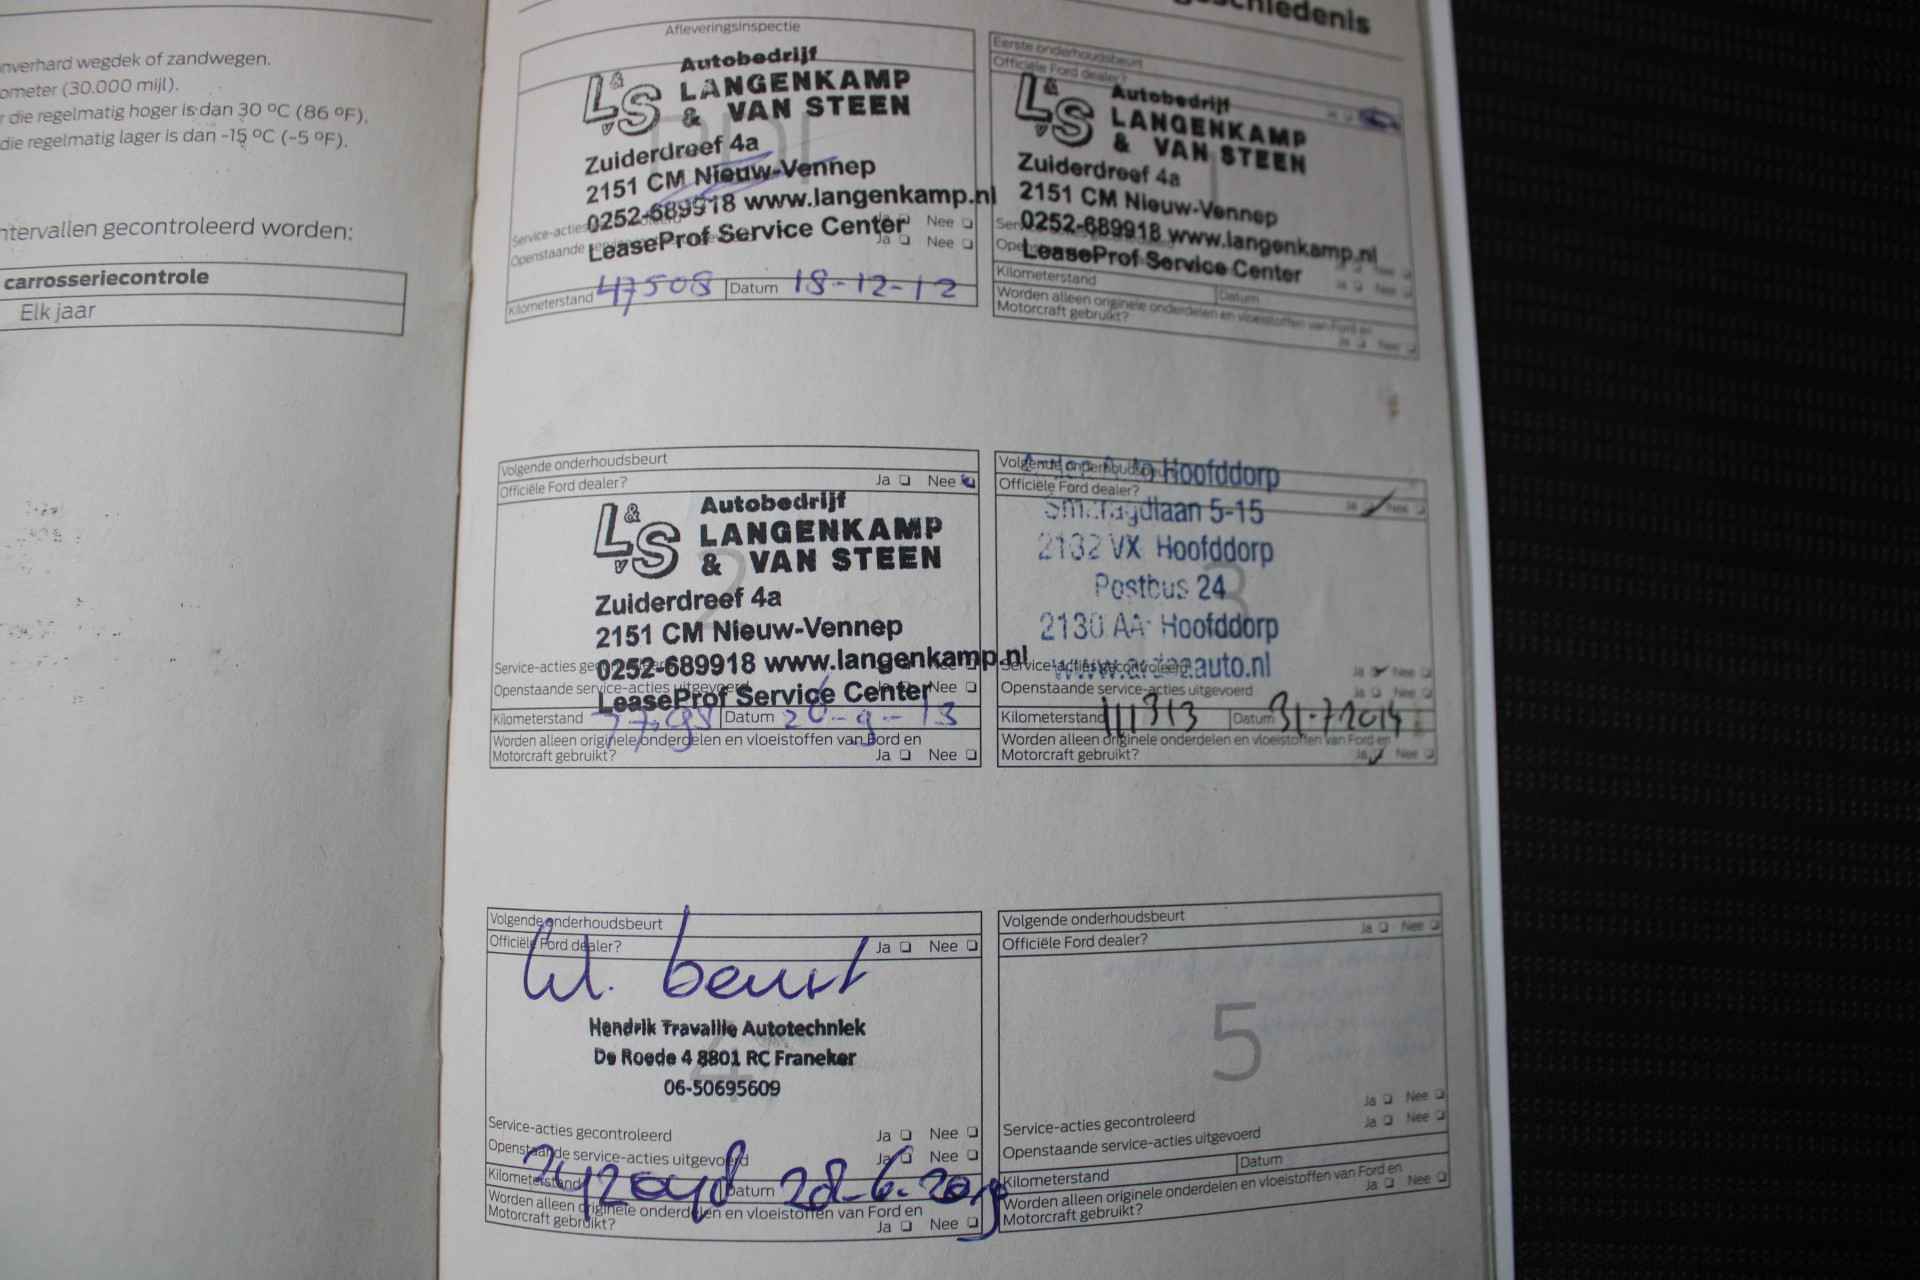 nverhard wegdek of zandwegen.
ometer (30.000 mijl).
r die regelmatig hoger is dan 30 °C (86 °F).
die regelmatig lager is dan -15 °C (-5 °F).
ntervallen gecontroleerd worden:
carrosseriecontrole
Elk jaar
schiedenis
Afleveringsinspectie
L&S
v
Autobedrijf
LANGENKAMP
& VAN STEEN
Zuiderdreef 4a
2151 CM Nieuw-Vennep
0252-689918 www.langenkamp.nl
LeaseProf Service Center
Service-acties
Ja Nee
Openstaande
Ja Nee
Kilometerstand 47508 Datum 18-12-12
Eerste onderhoudsbeurt
Officiële Ford dealer?
L&S
v
Autobedrijf
LANGENKAMP
& VAN STEEN
Zuiderdreef 4a
2151 CM Nieuw-Vennep
0252-689918 www.langenkamp.nl
LeaseProf Service Center
Ja Nee
Kilometerstand Datum
Worden alleen originele onderdelen en vloeistoffen van Ford en
Motorcraft gebruikt?
Ja Nee
Volgende onderhoudsbeurt
Officiële Ford dealer? Ja Nee
L&S
v
Autobedrijf
LANGENKAMP
& VAN STEEN
2
Zuiderdreef 4a
2151 CM Nieuw-Vennep
0252-689918 www.langenkamp.nl
LeaseProf Service Center
Openstaande service-acties uitgevoerd Nee
Kilometerstand Datum 26-9-13
Worden alleen originele onderdelen en vloeistoffen van Ford en
Motorcraft gebruikt? Ja Nee
Hoofddorp
Officiële Ford dealer?
5-15
2132 VX Hoofddorp
3
Postbus 24
2130 AA Hoofddorp
Ja Nee
Openstaande service-acties uitgevoerd Ja Nee
Kilometerstand 111313 Datum 31-7 2014
Worden alleen originele onderdelen en vloeistoffen van Ford en
Motorcraft gebruikt? Ja Nee
Volgende onderhoudsbeurt
Officiële Ford dealer? Ja Nee
beurt
Hendrik Travaille Autotechniek
De Roede 4 8801 RC Franeker
4
06-50695609
Service-acties gecontroleerd Ja Nee
Openstaande service-acties uitgevoerd Ja Nee
Kilometerstand Datum
Worden alleen originele onderdelen en vloeistoffen van Ford en
Motorcraft gebruikt? Ja Nee
Volgende onderhoudsbeurt
Officiële Ford dealer? Ja Nee
5
Service-acties gecontroleerd Ja Nee
Openstaande service-acties uitgevoerd Ja Nee
Kilometerstand Datum
Worden alleen originele onderdelen en vloeistoffen van Ford en
Motorcraft gebruikt? Ja Nee